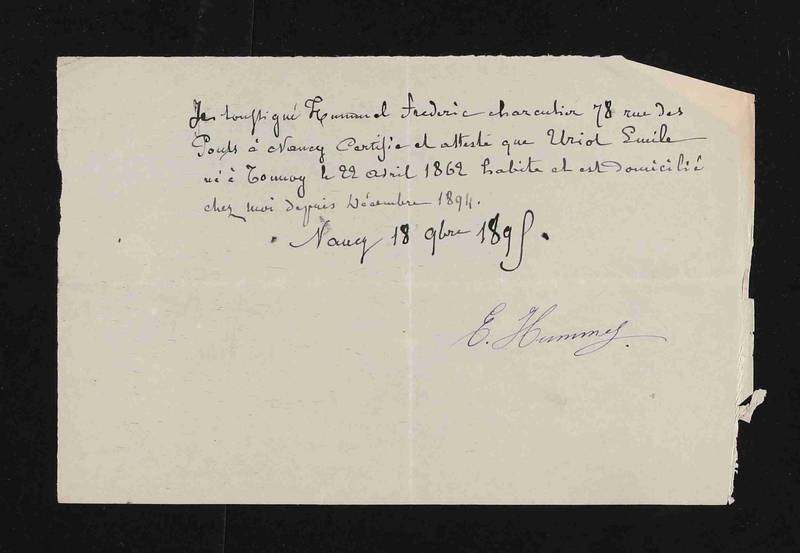 Je soussigné Hummel Frederic charcutier 78 rue des
Ponts à Nancy Certifie et atteste que Uriot Emile
né à Tonnoy le 22 avril 1862 habite et est domicilié
chez moi depuis Décembre 1894.
Nancy 18 9bre 1895.
E. Hummel